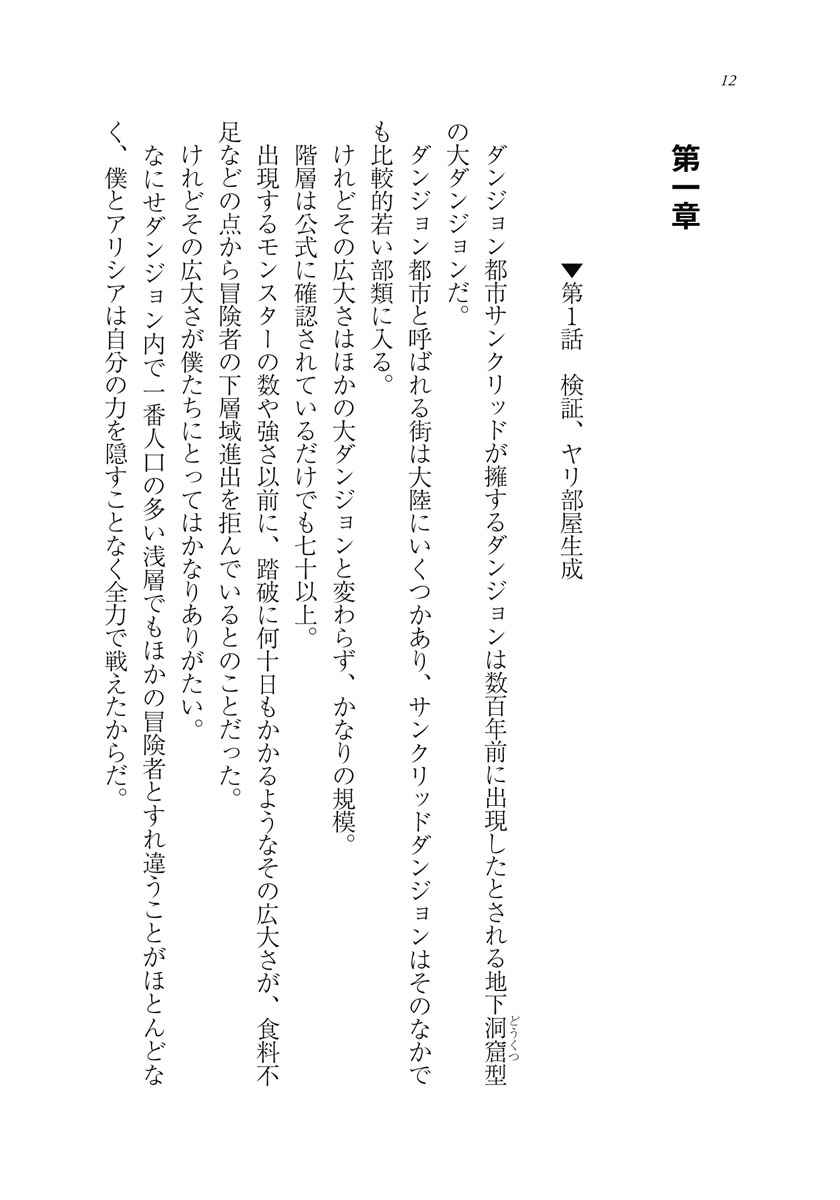 12
第一章
▼第1話　検証、ヤリ部屋生成
　ダンジョン都市サンクリッドが擁するダンジョンは数百年前に出現したとされる地下洞窟型
どうくつ
の大ダンジョンだ。
　ダンジョン都市と呼ばれる街は大陸にいくつかあり、サンクリッドダンジョンはそのなかで
も比較的若い部類に入る。
　けれどその広大さはほかの大ダンジョンと変わらず、かなりの規模。
　階層は公式に確認されているだけでも七十以上。
　出現するモンスターの数や強さ以前に、踏破に何十日もかかるようなその広大さが、食料不
足などの点から冒険者の下層域進出を拒んでいるとのことだった。
　けれどその広大さが僕たちにとってはかなりありがたい。
　なにせダンジョン内で一番人口の多い浅層でもほかの冒険者とすれ違うことがほとんどな
く、僕とアリシアは自分の力を隠すことなく全力で戦えたからだ。